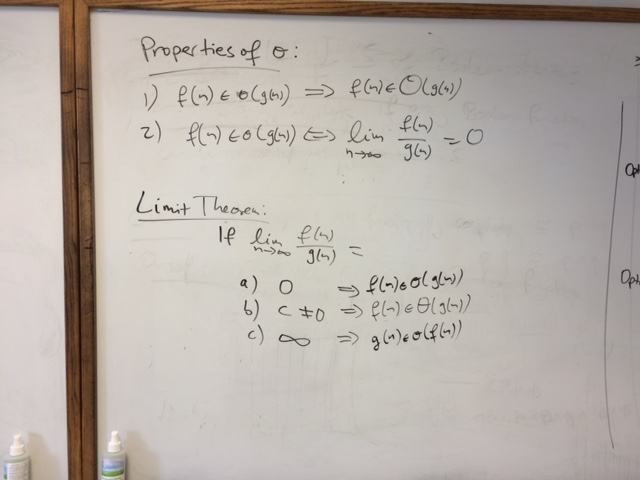 Properties of o:
1) f(n) ∈ o(g(n)) ⟹ f(n) ∈ O(g(n))
2) f(n) ∈ o(g(n)) ⟺ lim n→∞ f(n)/g(n) = 0
Limit Theorem:
If lim n→∞ f(n)/g(n) =
a) 0 ⟹ f(n) ∈ o(g(n))
b) c ≠ 0 ⟹ f(n) ∈ Θ(g(n))
c) ∞ ⟹ g(n) ∈ o(f(n))
Opt
Opti